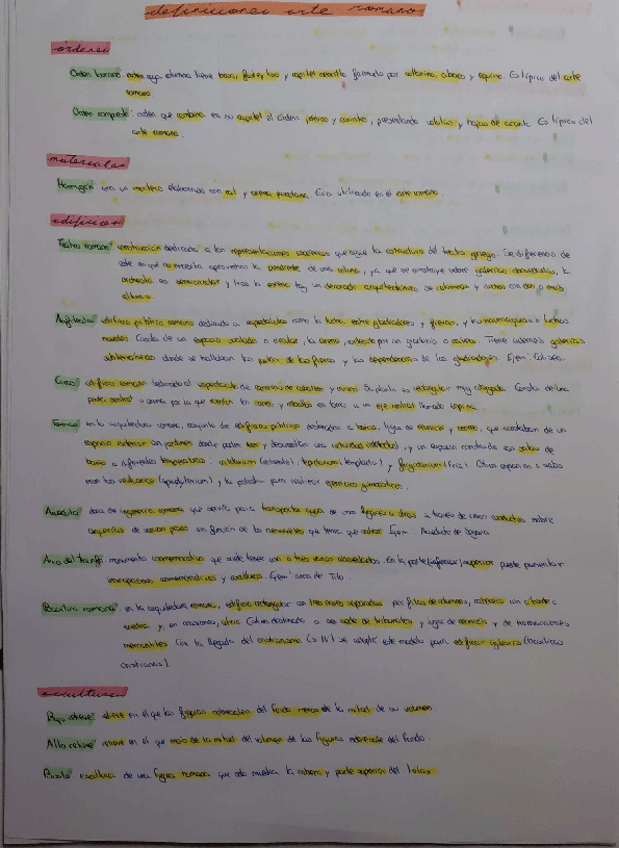 definiciones arte romano
órdenes
Orden toscano: orden cuya columna tiene basa, fuste y liso y capitel sencillo formado por collarino, ábaco y equino. Es típico del arte
romano
Orden compuesto: orden que combina en su capitel el orden jónico y corintio, presentando volutas y hojas de acanto. Es típico del
arte romano.
materiales
Hormigón: era un mortero elaborado con cal y arena puzolana. Era utilizado en el arte romano.
edificios
Teatro romano: construcción dedicada a las representaciones escénicas que sigue la estructura del teatro griego. Se diferencia de
este en que no necesita aprovechar la pendiente de una colina, ya que se construye sobre galerías abovedadas, la
orchestra es semicircular y tras la escena hay un decorado arquitectónico de columnas y nichos con dos o más
alturas.
Anfiteatro: edificio público romano dedicado a espectáculos como la lucha entre gladiadores y fieras, y las naumaquias o luchas
navales. Consta de un espacio ovalado o circular, la arena, rodeado por un graderío o cavea. Tiene además galerías
subterráneas donde se hallaban las jaulas de las fieras y las dependencias de los gladiadores. Ejem: Coliseo.
Circo: edificio romano destinado al espectáculo de carreras de caballos y carros. Su planta es rectangular muy alargada. Consta de una
parte central o arena por la que corrían los carros y caballos en torno a un eje central llamado espina.
Termas: en la arquitectura romana, conjunto de edificios públicos destinados a baños, lugar de reunión y recreo, que constaban de un
espacio exterior con jardines donde poder leer y desarrollar una actividad intelectual, y un espacio construido con salas de
baño a diferentes temperaturas: caldarium (caliente), tepidarium (templada) y frigidarium (fría). Otros espacios o salas
eran los vestuarios (apodyterium), y la palestra para realizar ejercicios gimnásticos.
Acueducto: obra de ingeniería romana que servía para transportar agua de unos lugares a otros a través de unos conductos sobre
arquerías de varios pisos en función de los desniveles que tenía que salvar. Ejem: Acueducto de Segovia
Arco del triunfo: monumento conmemorativo que suele tener uno o tres vanos abovedados. En la parte superior puede presentar
inscripciones conmemorativas y escultura. Ejem: arco de Tito.
Basílica romana: en la arquitectura romana, edificio rectangular con tres naves separadas por filas de columnas, cabecera con ábside o
exedra y, en ocasiones, atrio. Estaba destinado a ser sede de tribunales y lugar de reunión y de transacciones
mercantiles. Con la llegada del cristianismo (s. IV) se adoptó este modelo para edificar iglesias (basílicas
cristianas).
escultura
Bajo relieve: relieve en el que las figuras sobresalen del fondo menos de la mitad de su volumen.
Alto relieve: relieve en el que más de la mitad del volumen de las figuras sobresale del fondo.
Busto: escultura de una figura humana que solo muestra la cabeza y parte superior del torax.